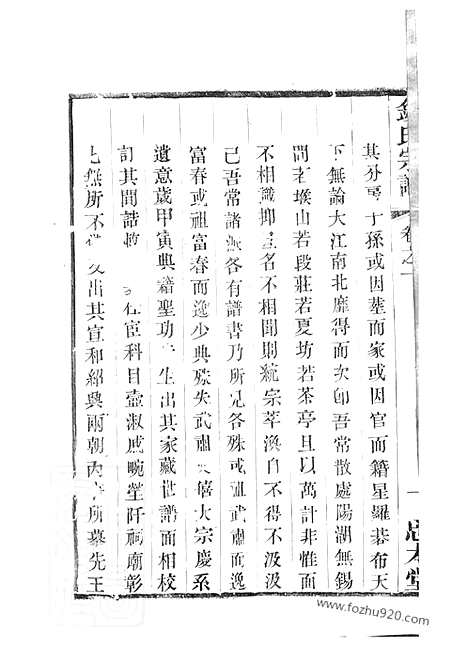 氏宗譜 卷之一
其分 子孫或因葬而家或因官而籍星羅棊布天
下無論大江南北靡得而次即吾常散處陽湖無錫
間若堠山若段莊若夏坊若茶亭且以萬計非惟面
不相識抑且名不相聞則統宗萃渙自不得不汲汲
已吾常諸派各有譜書乃所見各殊或祖武肅而逸
富春或祖富春而逸少典殊失武肅 大宗慶系
遺意歲甲寅典籍聖功 生出其家藏世譜而相校
訂其間誥 仕宦科目壼淑戚畹塋阡祠廟彰
無所不 又出其宣和紹興兩朝内 所墓先王
一 思本堂
www.fozhu920.com